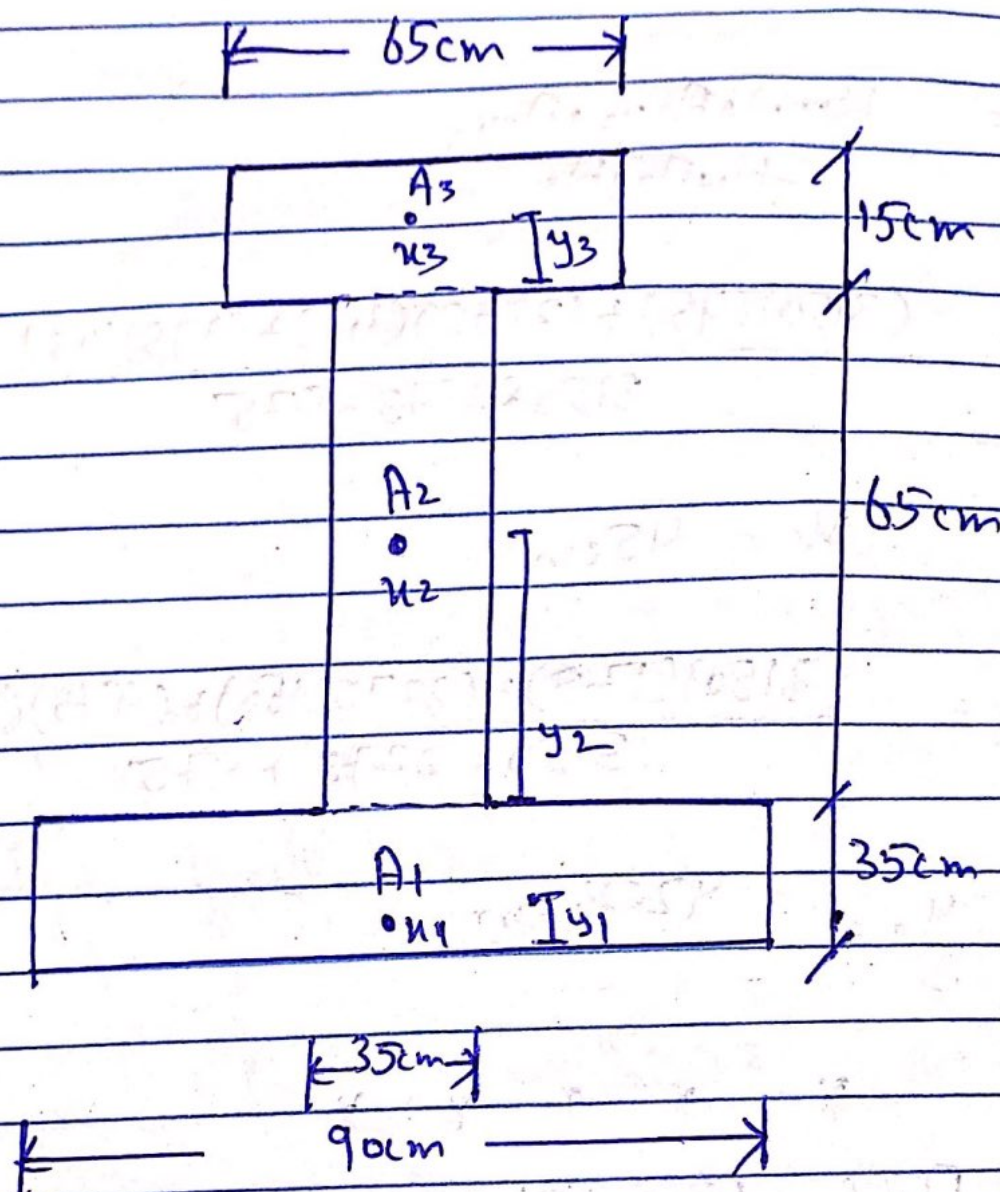 65cm
A3
x3
y3
15cm
A2
x2
65cm
y2
A1
x1
y1
35cm
35cm
90cm